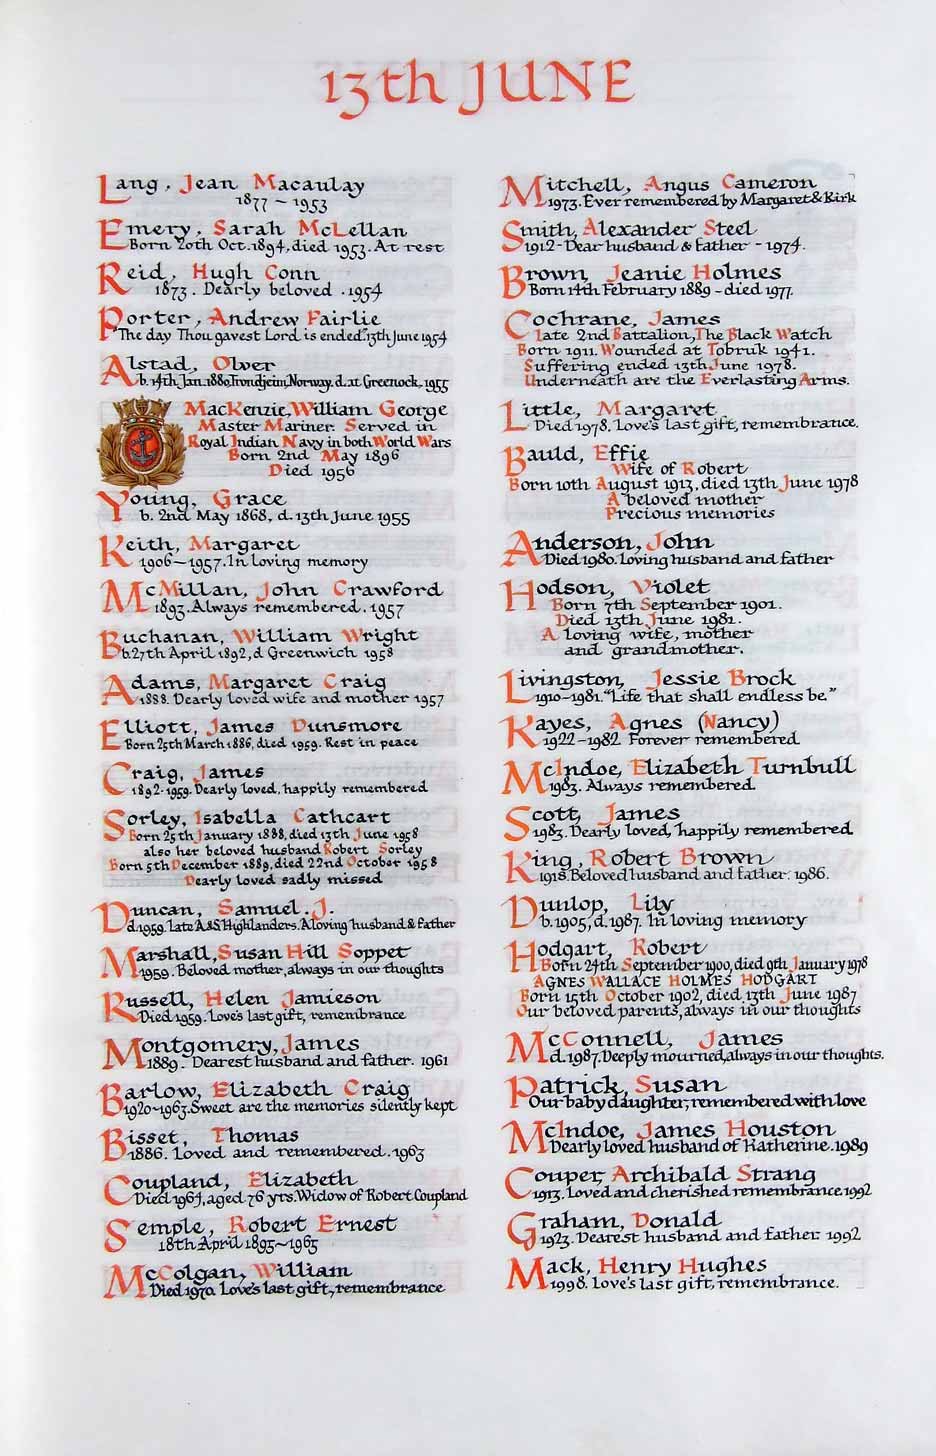 13th JUNE
Lang, Jean Macaulay
1877 ~ 1953
Emery, Sarah McLellan
Born 20th Oct. 1894, died 1953. At rest
Reid, Hugh Conn
1873. Dearly beloved. 1954
Porter, Andrew Fairlie
"The day Thou gavest Lord is ended". 13th June 1954
Alstad, Olver
b. 14th Jan. 1880, Trondjeim, Norway. d. at Greenock, 1955
MacKenzie, William George
Master Mariner. Served in
Royal Indian Navy in both World Wars
Born 2nd May 1896
Died 1956
Young, Grace
b. 2nd May 1868, d. 13th June 1955
Keith, Margaret
1906~1957. In loving memory
McMillan, John Crawford
1893. Always remembered. 1957
Buchanan, William Wright
b. 27th April 1892, d Greenwich 1958
Adams, Margaret Craig
1888. Dearly loved wife and mother 1957
Elliott, James Dunsmore
Born 25th March 1886, died 1959. Rest in peace
Craig, James
1892-1959. Dearly loved, happily remembered
Sorley, Isabella Cathcart
Born 25th January 1888, died 13th June 1958
also her beloved husband Robert Sorley
Born 5th December 1889, died 22nd October 1958
Dearly loved sadly missed
Duncan, Samuel. J.
d. 1959. Late A&S. Highlanders. A loving husband & father
Marshall, Susan Hill Soppet
1959. Beloved mother, always in our thoughts
Russell, Helen Jamieson
Died 1959. Love's last gift, remembrance
Montgomery, James
1889. Dearest husband and father. 1961
Barlow, Elizabeth Craig
1920~1963. Sweet are the memories silently kept
Bisset, Thomas
1886. Loved and remembered. 1963
Coupland, Elizabeth
Died 1964, aged 76 yrs. Widow of Robert Coupland
Semple, Robert Ernest
18th April 1895~1965
McColgan, William
Died 1970. Love's last gift, remembrance
Mitchell, Angus Cameron
1973. Ever remembered by Margaret & Kirk
Smith, Alexander Steel
1912 - Dear husband & father - 1974.
Brown, Jeanie Holmes
Born 14th February 1889 - died 1977.
Cochrane, James
Late 2nd Battalion, The Black Watch
Born 1911. Wounded at Tobruk 1941.
Suffering ended 13th June 1978.
Underneath are the Everlasting Arms.
Little, Margaret
Died 1978. Love's last gift, remembrance.
Bauld, Effie
Wife of Robert
Born 10th August 1913, died 13th June 1978
A beloved mother
Precious memories
Anderson, John
Died 1980. Loving husband and father
Hodson, Violet
Born 7th September 1901.
Died 13th June 1981.
A loving wife, mother
and grandmother.
Livingston, Jessie Brock
1910-1981. "Life that shall endless be."
Kayes, Agnes (Nancy)
1922-1982. Forever remembered
McIndoe, Elizabeth Turnbull
1983. Always remembered.
Scott, James
1983. Dearly loved, happily remembered
King, Robert Brown
1918. Beloved husband and father. 1986.
Dunlop, Lily
b. 1905, d. 1987. In loving memory
Hodgart, Robert
Born 24th September 1900, died 9th January 1978
AGNES WALLACE HOLMES HODGART
Born 15th October 1902, died 13th June 1987
Our beloved parents, always in our thoughts
McConnell, James
d. 1987. Deeply mourned, always in our thoughts.
Patrick, Susan
Our baby daughter, remembered with love
McIndoe, James Houston
Dearly loved husband of Katherine. 1989
Couper, Archibald Strang
1913. Loved and cherished remembrance 1992
Graham, Donald
1923. Dearest husband and father 1992
Mack, Henry Hughes
1998. Love's last gift, remembrance.